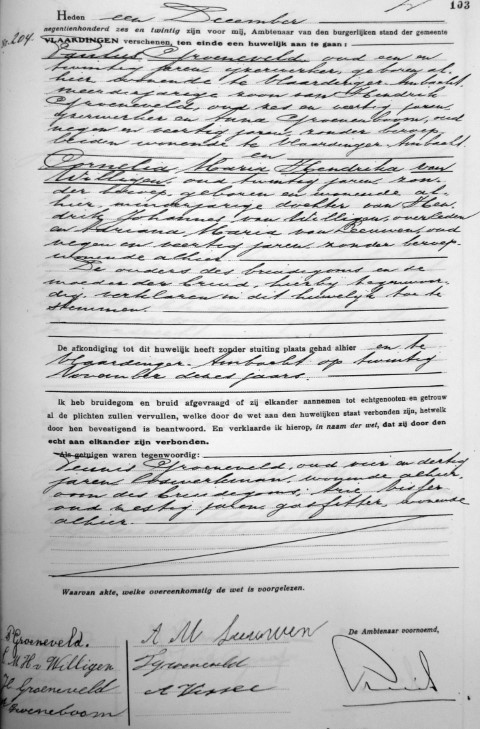 103
Heden een December
negentienhonderd zes en twintig zijn voor mij, Ambtenaar van den burgerlijken stand der gemeente
No. 204. VLAARDINGEN verschenen, ten einde een huwelijk aan te gaan:
Paulus Groeneveld, oud een en
twintig jaren, ijzerwerker, geboren al-
hier, wonende te Vlaardinger-Ambacht,
meerderjarige zoon van Hendrik
Groeneveld, oud zes en veertig jaren,
ijzerwerker en Anna Groeneboom, oud
negen en veertig jaren, zonder beroep,
beiden wonende te Vlaardinger-Ambacht
en
Cornelia Maria Hendrika van
Willigen, oud twintig jaren, zon-
der beroep, geboren en wonende al-
hier, minderjarige dochter van Hen-
drik Johannes van Willigen, overleden
en Adriana Maria van Leeuwen, oud
negen en veertig jaren, zonder beroep,
wonende alhier.
De ouders des bruidegoms en de
moeder der bruid, hierbij tegenwoor-
dig, verklaren in dit huwelijk toe te
stemmen.
De afkondiging tot dit huwelijk heeft zonder stuiting plaats gehad alhier en te
Vlaardinger-Ambacht op twintig
November dezes jaars.
Ik heb bruidegom en bruid afgevraagd of zij elkander aannemen tot echtgenooten en getrouw
al de plichten zullen vervullen, welke door de wet aan den huwelijken staat verbonden zijn, hetwelk
door hen bevestigend is beantwoord. En verklaarde ik hierop, in naam der wet, dat zij door den
echt aan elkander zijn verbonden.
Als getuigen waren tegenwoordig:
Teunis Groeneveld, oud vier en dertig
jaren, loswerkman, wonende alhier,
oom des bruidegoms; Arie
oud zestig jaren, gasfitter, wonende
alhier.
Waarvan akte, welke overeenkomstig de wet is voorgelezen.
De Ambtenaar voornoemd,
P Groeneveld.
C M H v Willigen
H Groeneveld
Groeneboom
A M Leeuwen
T Groeneveld
A